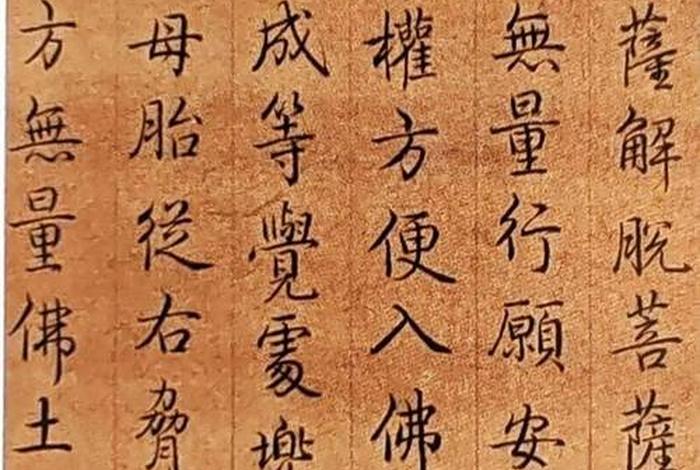 薩解脫菩薩
無量行願安
權方便入佛
成等覺處兜
母胎從右脅
方無量佛土